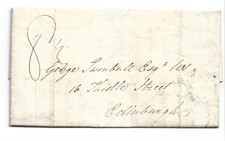 8½
George Turnbull Esqr WS
16 Thistle Street
Edinburgh